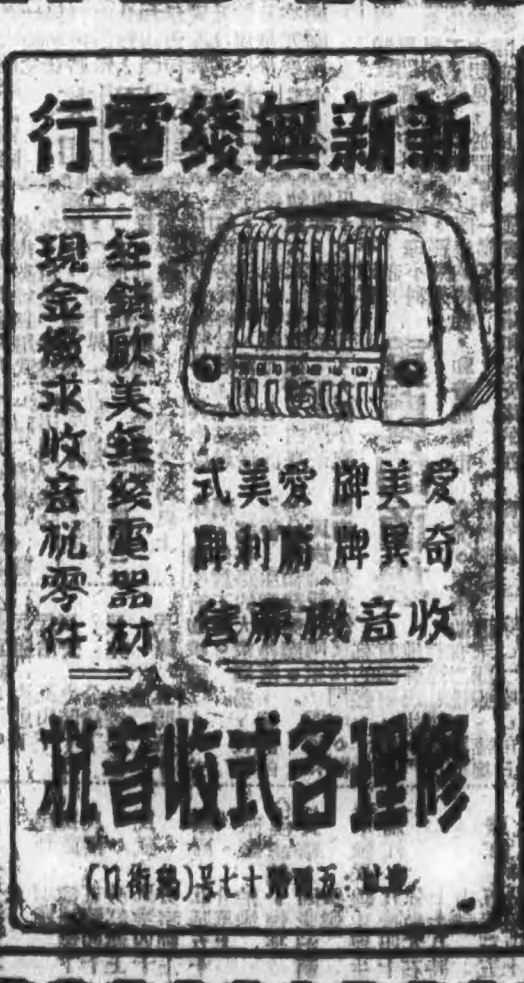 新新無綫電行
愛美牌 愛美式
奇異牌 勝利牌
收音機廉售
經銷歐美無綫電器材
現金徵求收音机零件
修理各式收音机
地址：五路十七号（街口）